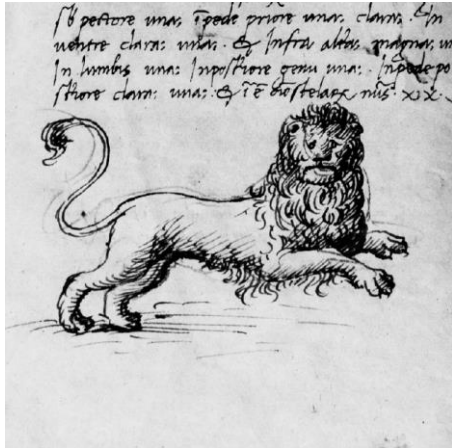 sb pectore unaʒ ĩpede priore unaʒ claraʒ. In
uentre claraʒ unaʒ. Et infra altaʒ magnaʒ un
In lumbis unaʒ Inpostiore genu unaʒ. Inpede po
stiore claraʒ unaʒ. Et nũs xix.